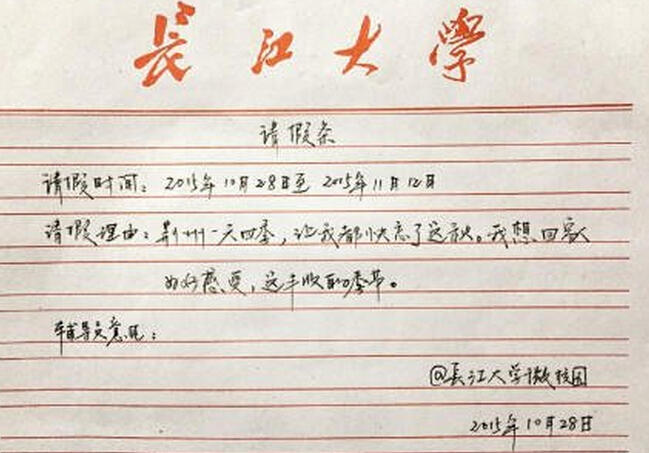 長江大学
请假条
请假时间：2015年10月28日至2015年11月12日
请假理由：荆州一天四季，让我都快忘了这秋。我想回家
好好感受，这丰收的季节。
辅导员意见：
@長江大学微校园
2015年10月28日